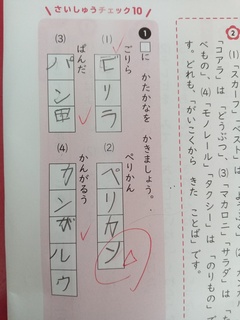 さいしゅうチェック10
1 □に かたかなを かきましょう。
(1) ごりら
ゴリラ
(2) ぺりかん
ペリカン
(3) ぱんだ
パン
(4) かんがるう
カンガルウ
2
(1)「スカーフ」「ベスト」は
「コアラ」は「どうぶつ」、(3)「マカロニ」「サラダ」は「
べもの」、(4)「モノレール」「タクシー」は「のりもの」で
す。どれも、「がいこくから きた ことば」です。